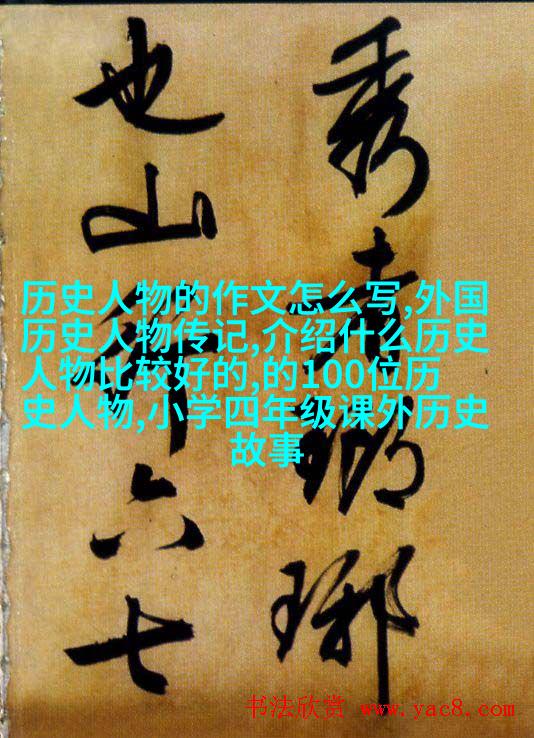 秀者瑯琊
也山行六七
历史人物的作文怎么写,外国
历史人物传记,介绍什么历史
人物比较好的,的100位历
史人物,小学四年级课外历史
故事
书法欣赏 www.yac8.com